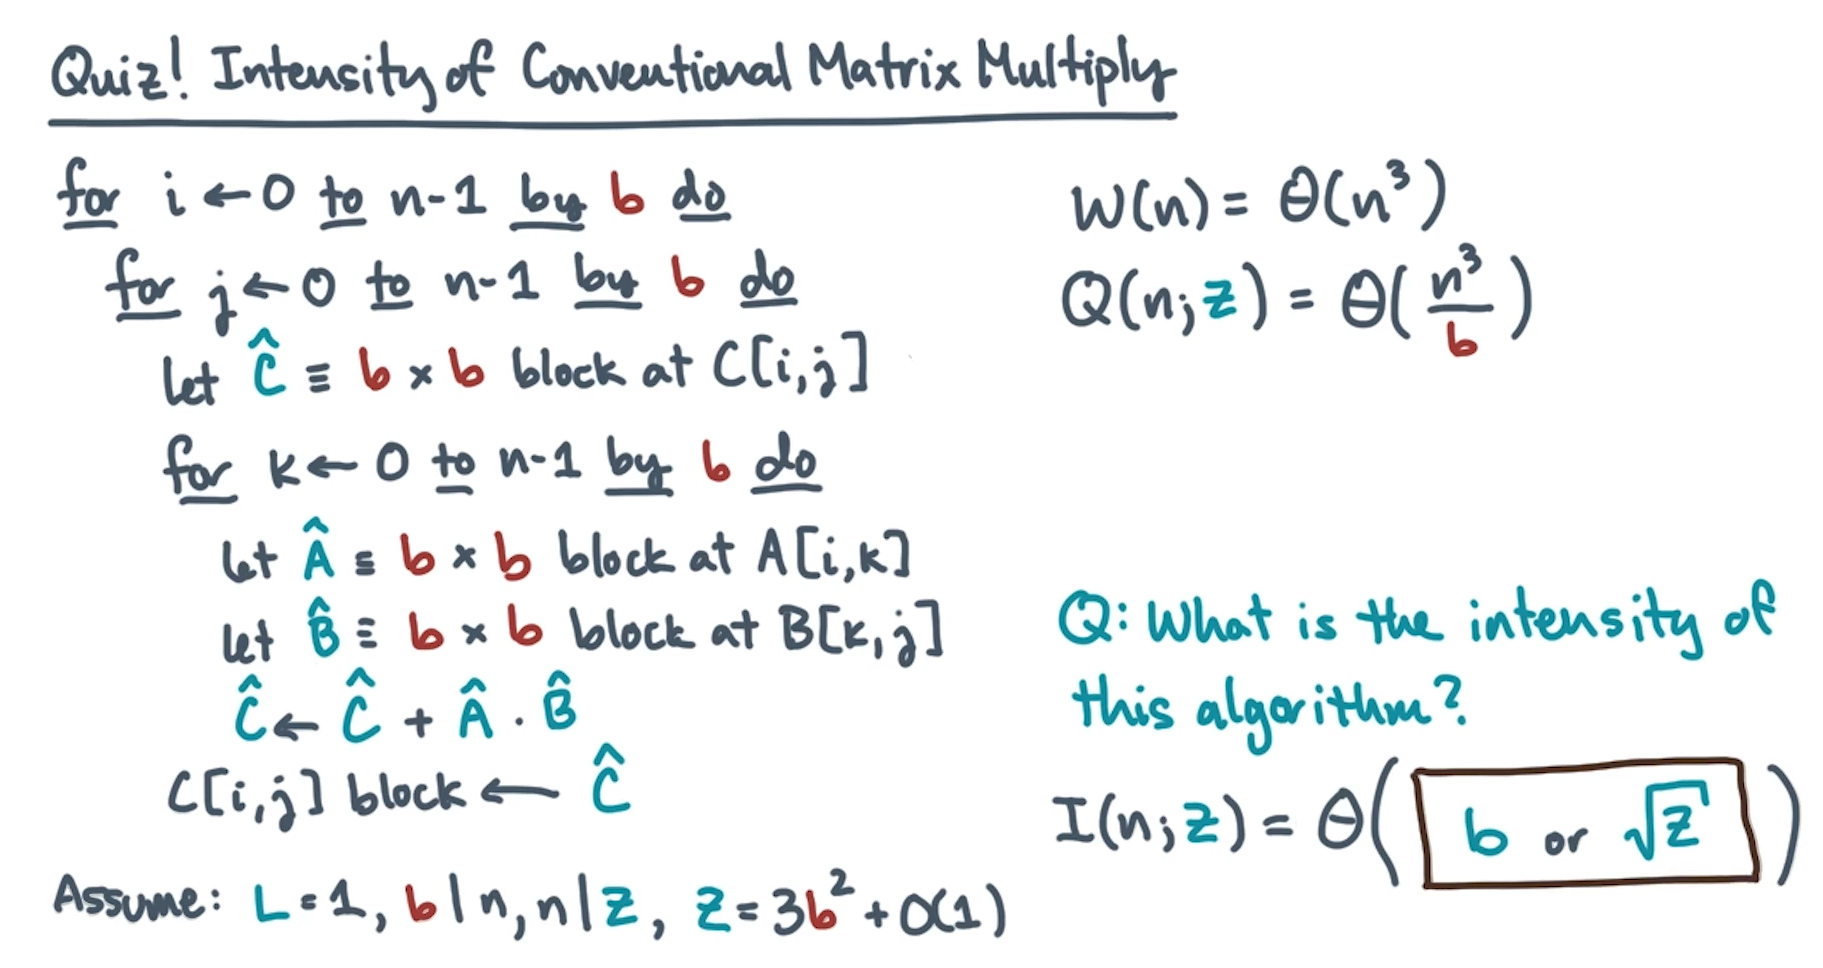 Quiz! Intensity of Conventional Matrix Multiply
for i ← 0 to n-1 by b do
for j ← 0 to n-1 by b do
let Ĉ ≡ b × b block at C[i,j]
for k ← 0 to n-1 by b do
let Â ≡ b × b block at A[i,k]
let B̂ ≡ b × b block at B[k,j]
Ĉ ← Ĉ + Â · B̂
C[i,j] block ← Ĉ
Assume: L = 1, b | n, n | Z, Z = 3b² + O(1)
W(n) = Θ(n³)
Q(n; Z) = Θ(n³/b)
Q: What is the intensity of
this algorithm?
I(n; Z) = Θ( b or √Z )